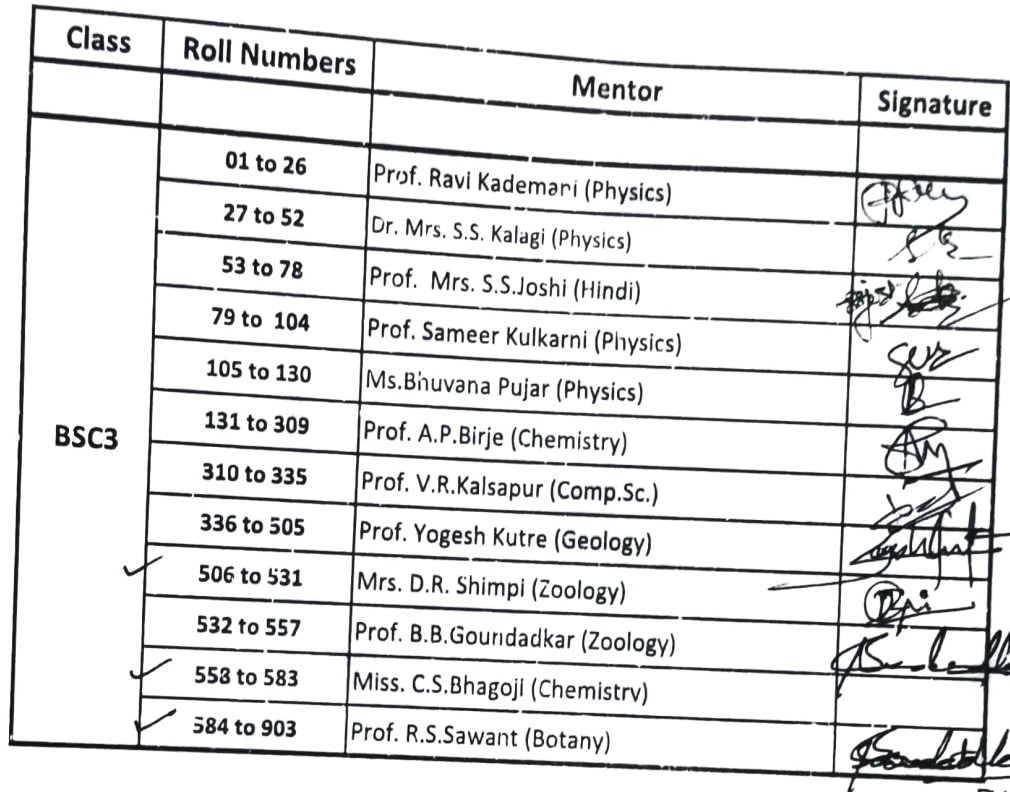 Class Roll Numbers Mentor Signature
01 to 26 Prof. Ravi Kademani (Physics)
27 to 52 Dr. Mrs. S.S. Kalagi (Physics)
53 to 78 Prof. Mrs. S.S.Joshi (Hindi)
79 to 104 Prof. Sameer Kulkarni (Physics)
105 to 130 Ms.Bhuvana Pujar (Physics)
131 to 309 Prof. A.P.Birje (Chemistry)
BSC3
310 to 335 Prof. V.R.Kalsapur (Comp.Sc.)
336 to 505 Prof. Yogesh Kutre (Geology)
506 to 531 Mrs. D.R. Shimpi (Zoology)
532 to 557 Prof. B.B.Goundadkar (Zoology)
558 to 583 Miss. C.S.Bhagoji (Chemistry)
584 to 903 Prof. R.S.Sawant (Botany)